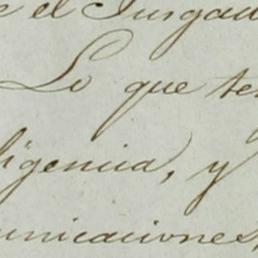 e el Jusgad
Lo que te
ligencia, y
unicaciones,